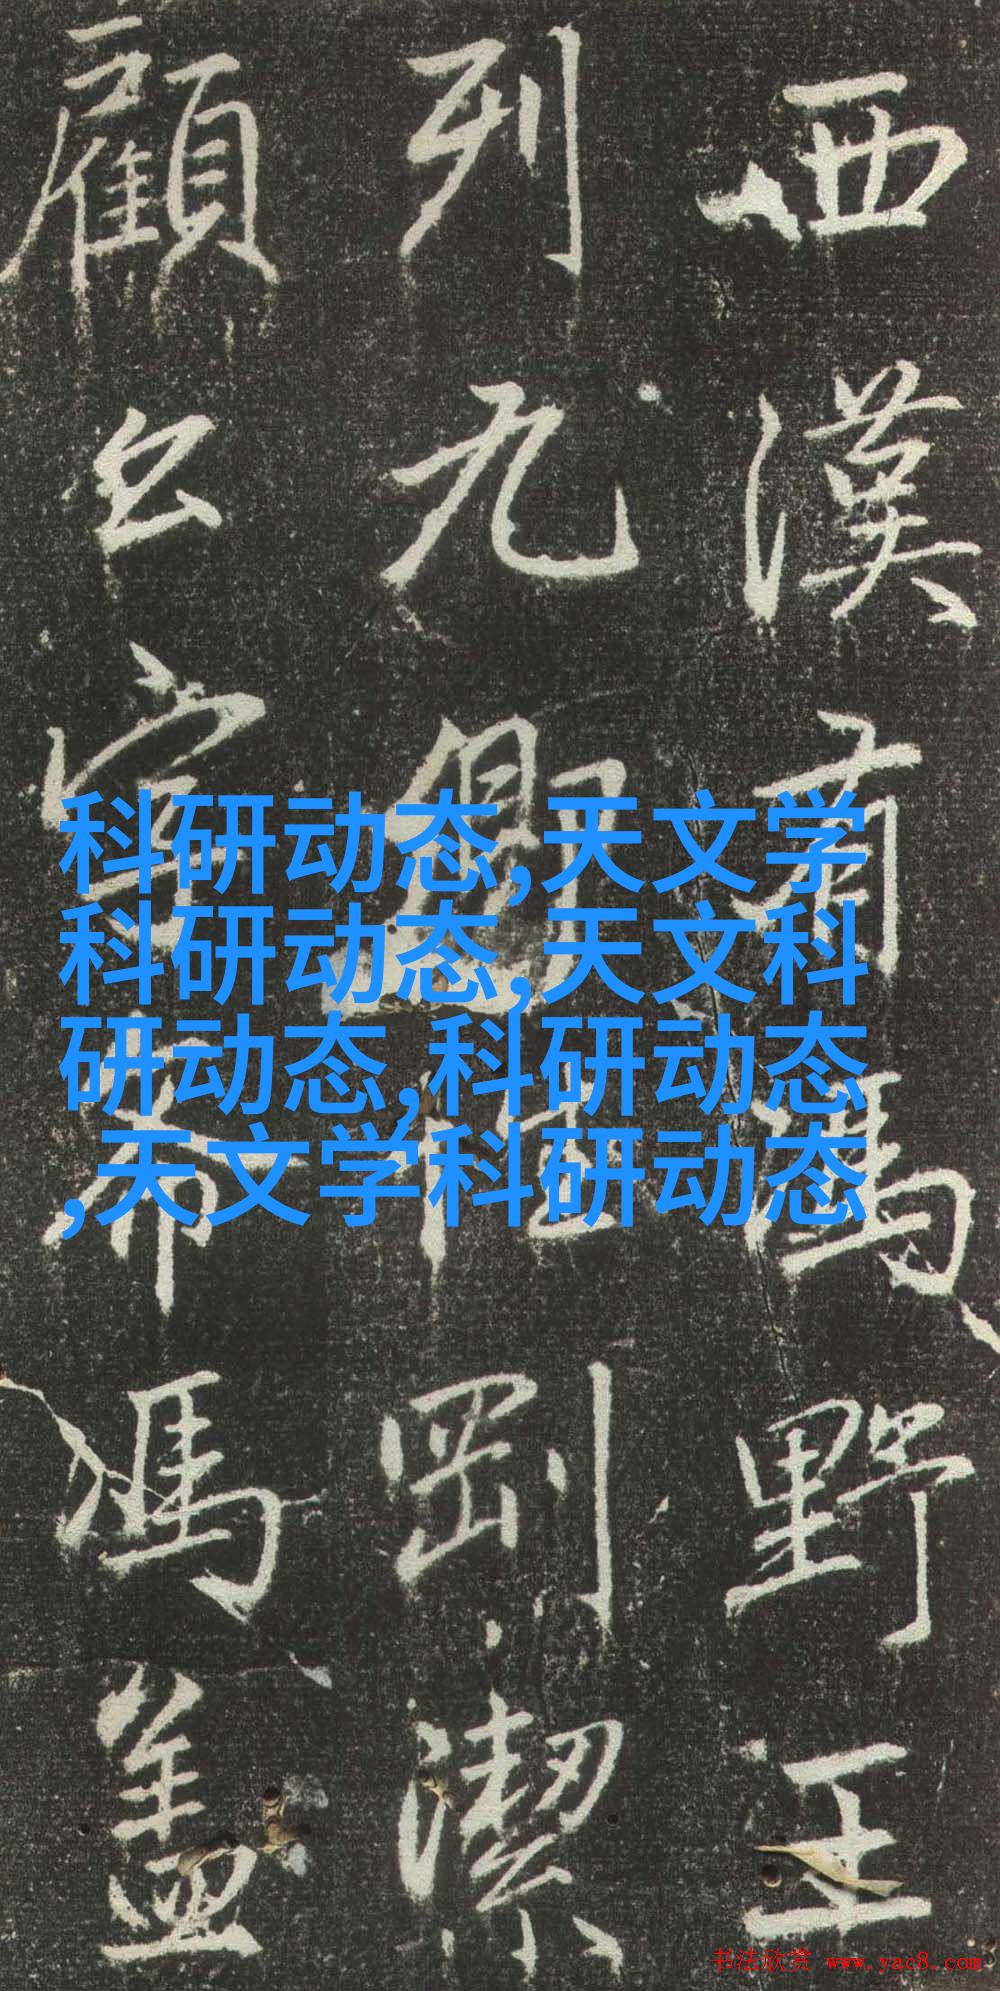 西漢有馮野王
列九卿
剛潔
顧公宣
馮盖
科研动态,天文学
科研动态,天文科
研动态,科研动态
,天文学科研动态
书法欣赏 www.yac8.com